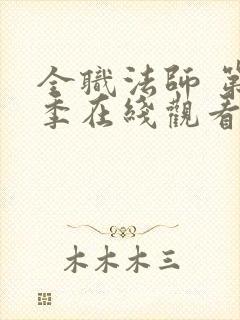 全職法師 第
季在綫觀看
木木木三